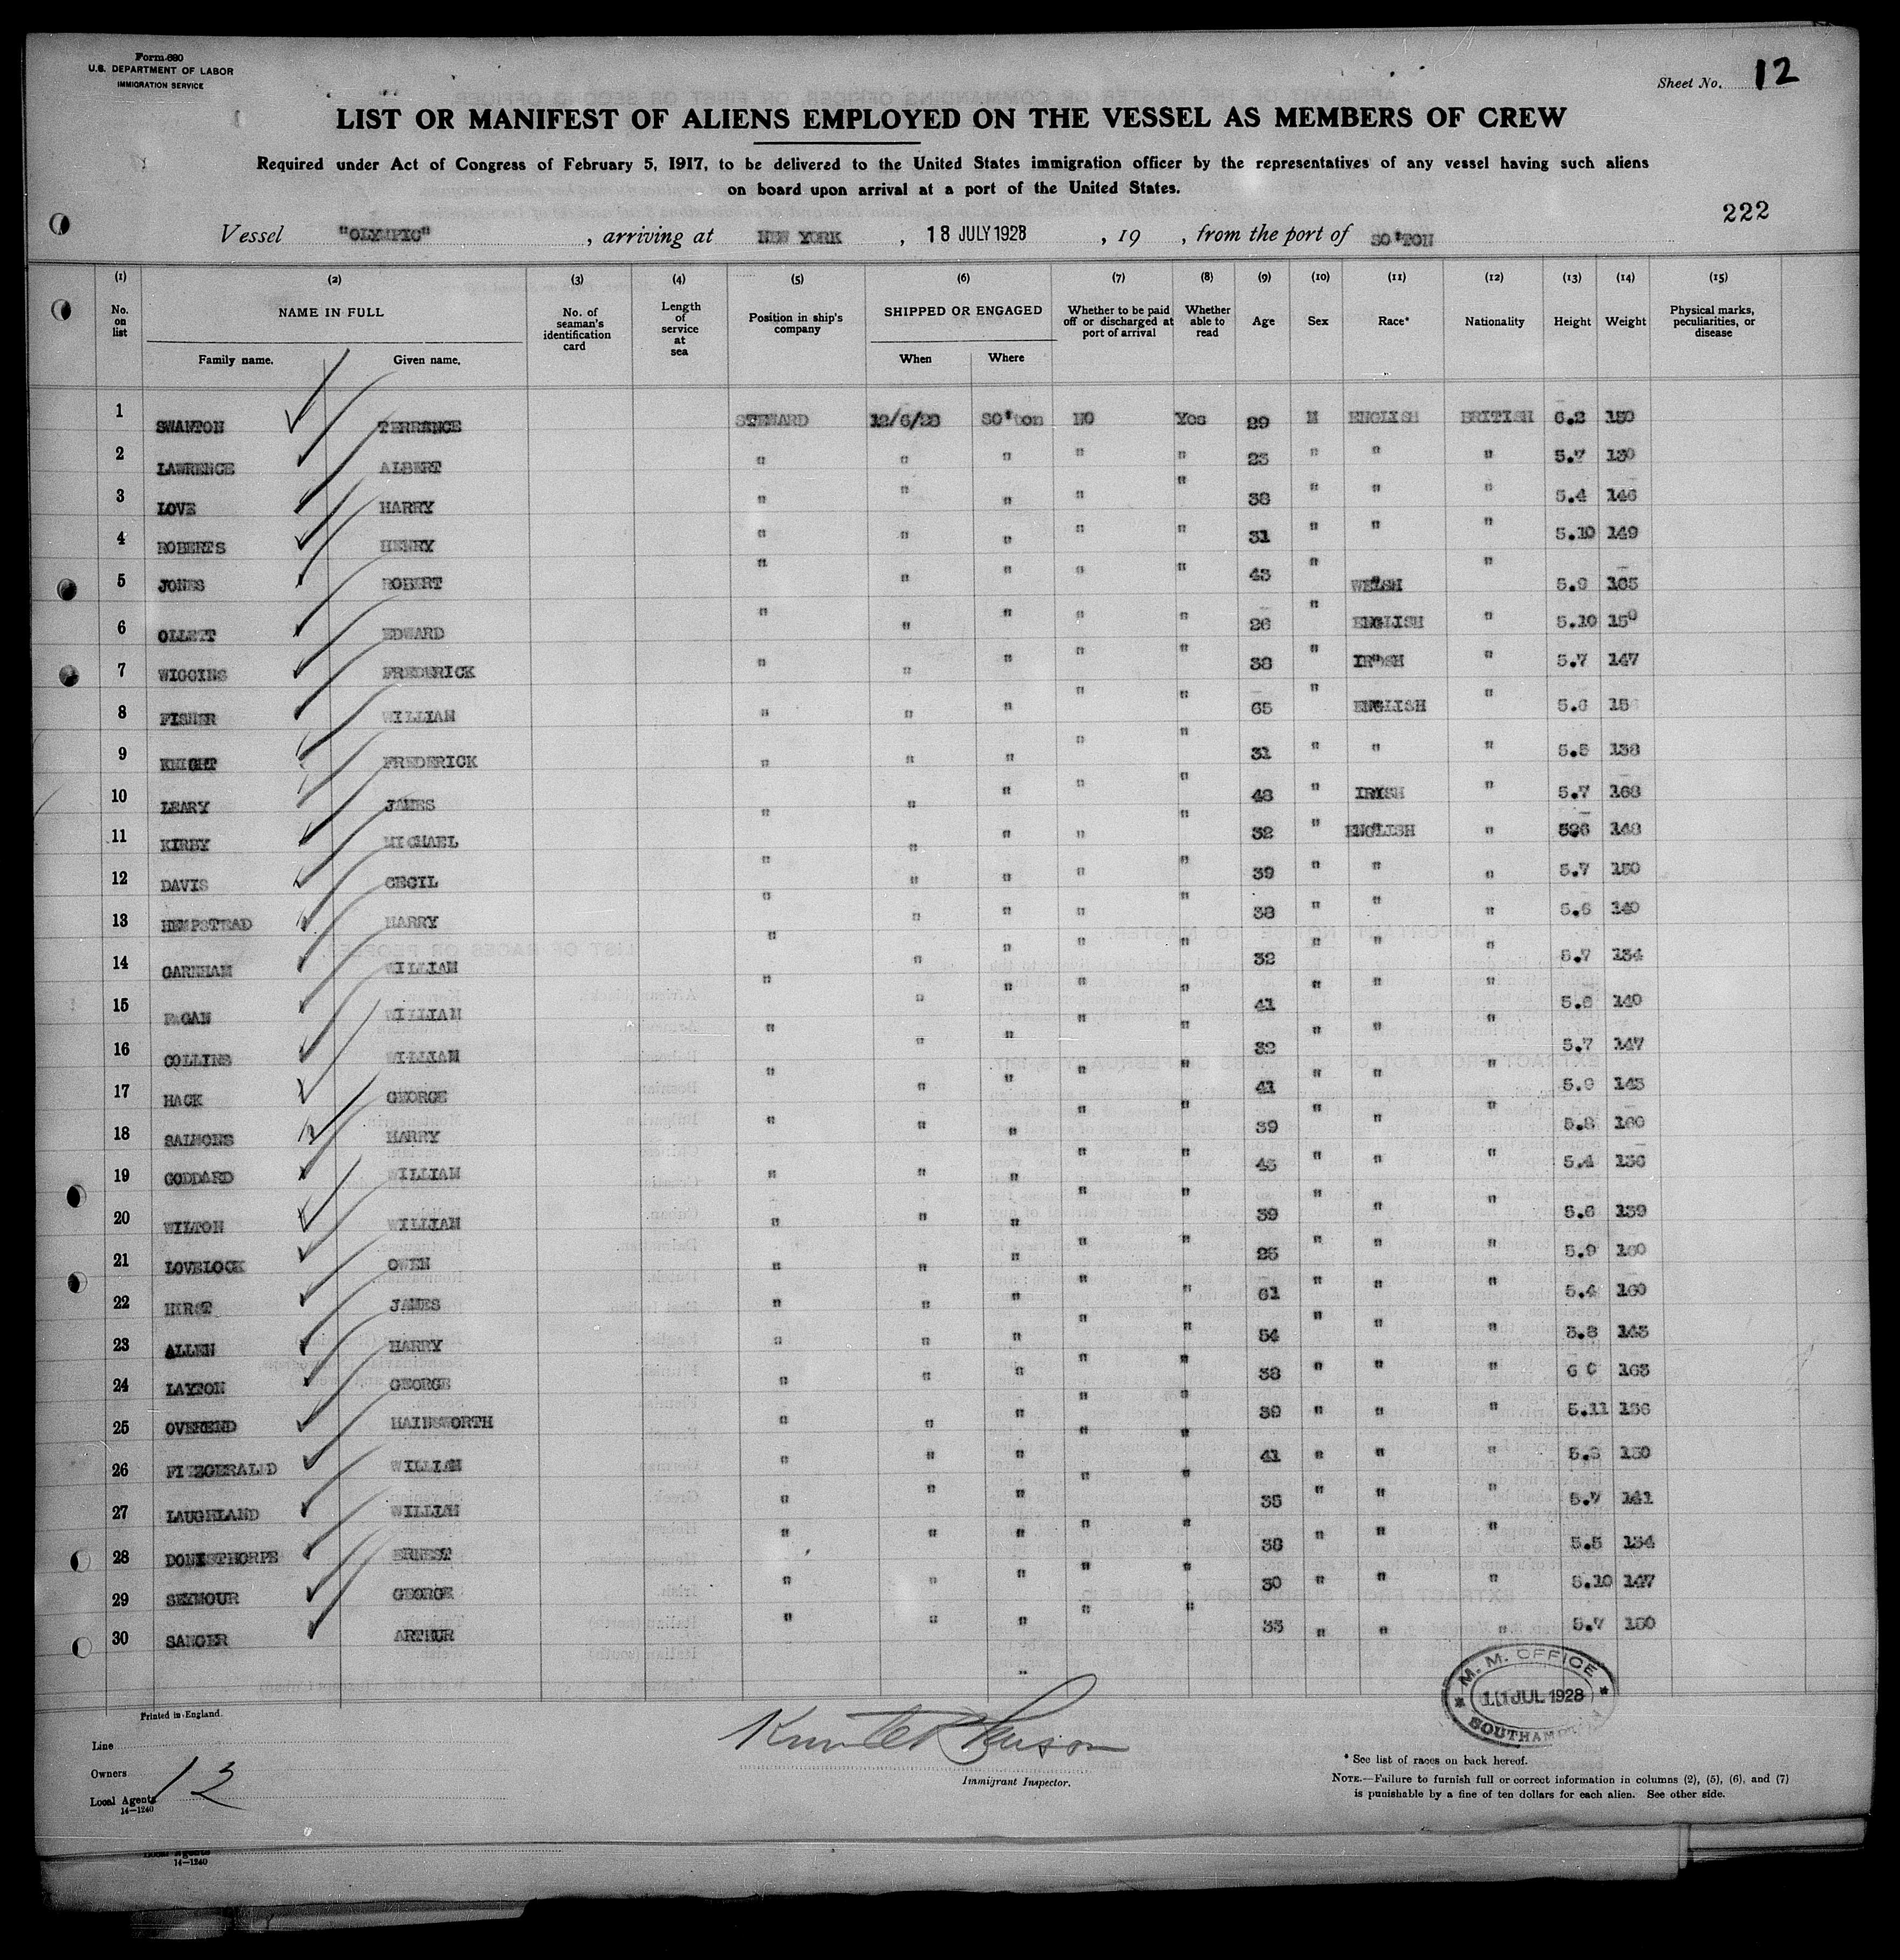 Form 680
U.S. DEPARTMENT OF LABOR
IMMIGRATION SERVICE
Sheet No. 12
LIST OR MANIFEST OF ALIENS EMPLOYED ON THE VESSEL AS MEMBERS OF CREW
Required under Act of Congress of February 5, 1917, to be delivered to the United States immigration officer by the representatives of any vessel having such aliens
on board upon arrival at a port of the United States.
222
Vessel "OLYMPIC" , arriving at NEW YORK , 18 JULY 1928 , 19 , from the port of SO'TON
(1) (2) (3) (4) (5) (6) (7) (8) (9) (10) (11) (12) (13) (14) (15)
No. on list NAME IN FULL Family name. Given name. No. of seaman's identification card Length of service at sea Position in ship's company SHIPPED OR ENGAGED When Where Whether to be paid off or discharged at port of arrival Whether able to read Age Sex Race* Nationality Height Weight Physical marks, peculiarities, or disease
1 SWANTON TERRENCE STEWARD 12/6/28 SO'ton NO Yes 29 M ENGLISH BRITISH 6.2 150
2 LAWRENCE ALBERT " " " " " 23 " " " 5.7 130
3 LOVE HARRY " " " " " 38 " " " 5.4 146
4 ROBERTS HENRY " " " " " 31 " " " 5.10 149
5 JONES ROBERT " " " " " 43 " WELSH " 5.9 165
6 OLLETT EDWARD " " " " " 26 " ENGLISH " 5.10 150
7 WIGGINS FREDERICK " " " " " 38 " IRISH " 5.7 147
8 FISHER WILLIAM " " " " " 65 " ENGLISH " 5.6 15
9 KNIGHT FREDERICK " " " " " 31 " " " 5.5 138
10 LEARY JAMES " " " " " 48 " IRISH " 5.7 168
11 KIRBY MICHAEL " " " " " 32 " ENGLISH " 5.6 148
12 DAVIS CECIL " " " " " 39 " " " 5.7 150
13 HEMPSTEAD HARRY " " " " " 38 " " " 5.6 140
14 GARNHAM WILLIAM " " " " " 32 " " " 5.7 134
15 FAGAN WILLIAM " " " " " 41 " " " 5.8 140
16 COLLINS WILLIAM " " " " " 32 " " " 5.7 147
17 HACK GEORGE " " " " " 41 " " " 5.9 145
18 SALMONS HARRY " " " " " 39 " " " 5.8 160
19 GODDARD WILLIAM " " " " " 45 " " " 5.4 136
20 WILTON WILLIAM " " " " " 39 " " " 5.6 139
21 LOVELOCK OWEN " " " " " 25 " " " 5.9 160
22 HIRST JAMES " " " " " 61 " " " 5.4 160
23 ALLEN HARRY " " " " " 54 " " " 5.8 145
24 LAYTON GEORGE " " " " " 38 " " " 6 0 163
25 OVEREND HAINSWORTH " " " " " 39 " " " 5.11 156
26 FITZGERALD WILLIAM " " " " " 41 " " " 5.8 150
27 LAUGHLAND WILLIAM " " " " " 35 " " " 5.7 141
28 DONISTHORPE ERNEST " " " " " 38 " " " 5.5 134
29 SEYMOUR GEORGE " " " " " 30 " " " 5.10 147
30 SANGER ARTHUR " " " " " 33 " " " 5.7 150
M. M. OFFICE
11 JUL 1928
SOUTHAMPTON
Printed in England.
Line
Owners
Local Agents 12
14—1240
Immigrant Inspector.
* See list of races on back hereof.
NOTE.—Failure to furnish full or correct information in columns (2), (5), (6), and (7)
is punishable by a fine of ten dollars for each alien. See other side.
14—1240